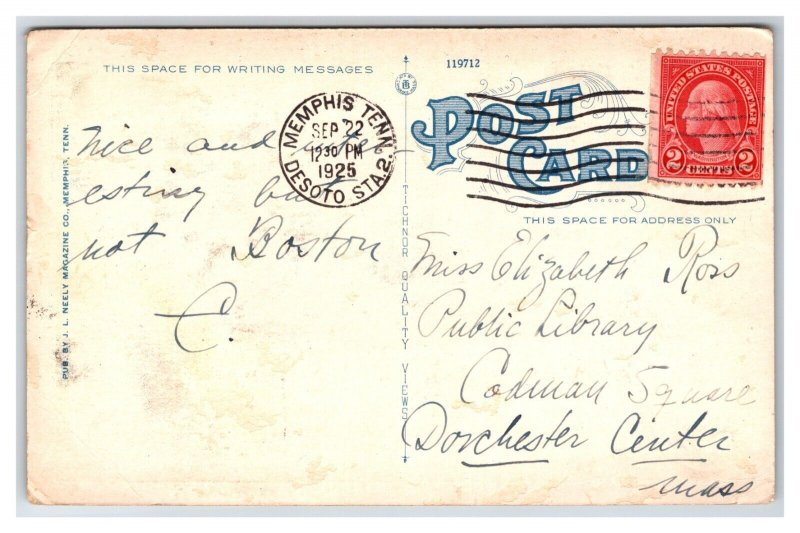 THIS SPACE FOR WRITING MESSAGES
119712
POST CARD
THIS SPACE FOR ADDRESS ONLY
UNITED STATES POSTAGE
2 CENTS 2
MEMPHIS TENN.
SEP 22
12 30 PM
1925
DESOTO STA. 2.
Nice and inter
esting but
not Boston
C.
Miss Elizabeth Ross
Public Library
Codman Square
Dorchester Center
Mass
PUB. BY J. L. NEELY MAGAZINE CO., MEMPHIS, TENN.
TICHNOR QUALITY VIEWS